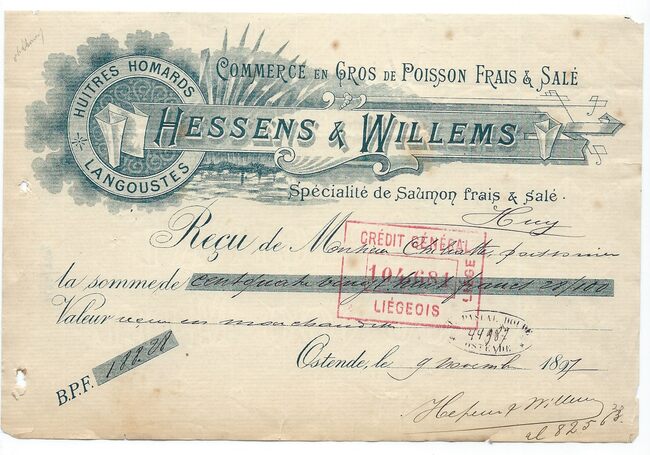 COMMERCE EN GROS DE POISSON FRAIS & SALÉ
HUITRES HOMARDS
LANGOUSTES
HESSENS & WILLEMS
Spécialité de Saumon frais & salé.
Huy
Reçu de Monsieur poissonnier
la somme de cent quatre vingt francs /100
Valeur reçue en marchandises
CRÉDIT GÉNÉRAL
LIÉGEOIS
LIÈGE
OSTENDE
B.P.F.
Ostende, le 9 novembre 1897
Hessens & Willems